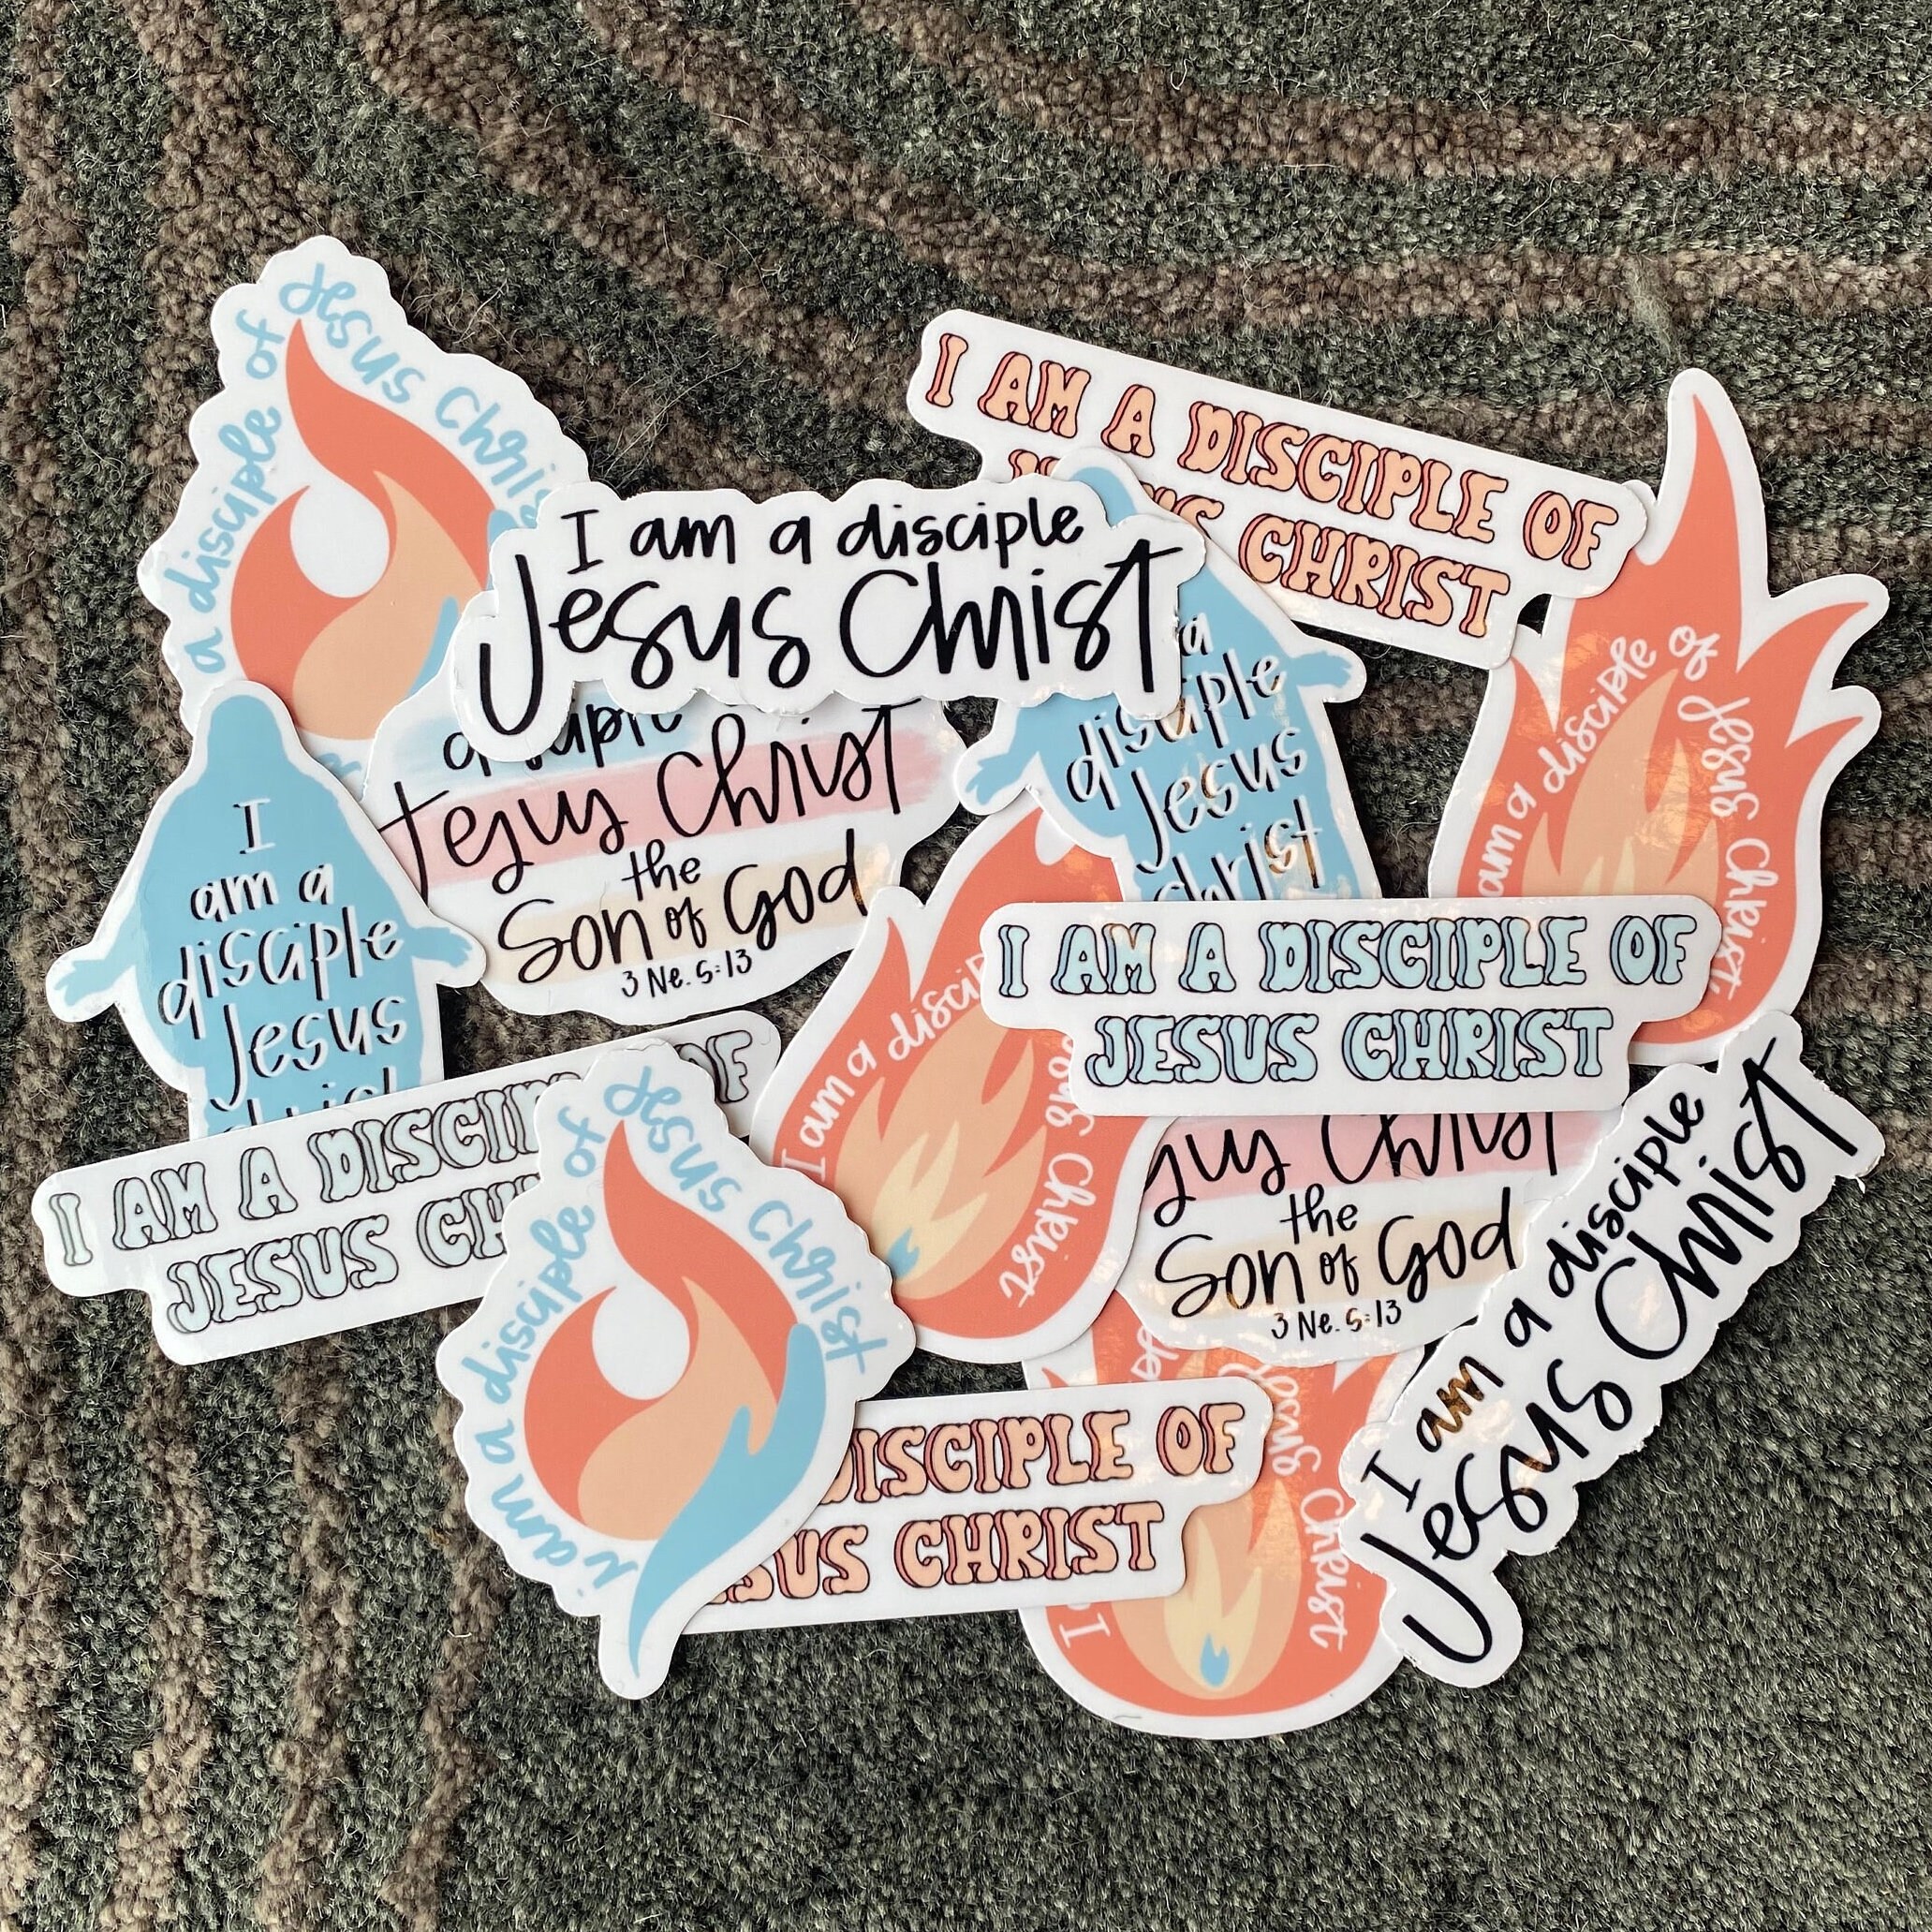 a disciple of Jesus Chris
I AM A DISCIPLE OF
US CHRIST
I am a disciple
Jesus Christ
a
disciple
Jesus
Christ
am a disciple of Jesus Christ
disciple
Jesus Christ
the
Son of God
3 Ne. 5:13
I
am a
disciple
Jesus
I AM A DISCIPLE OF
JESUS CHRIST
I am a discip
sus Christ
I AM A DISCIP OF
JESUS CH
i am a disciple of Jesus Christ
sus Christ
the
Son of God
3 Ne. 5:13
I am a disciple
Jesus Christ
DISCIPLE OF
SUS CHRIST
I
Jesus Christ